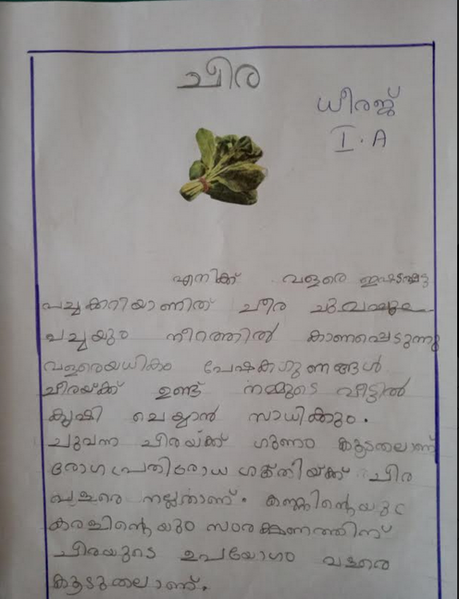 ചീര
ധീരജ്
I. A
എനിക്ക് വളരെ ഇഷ്ടപ്പെട്ട
പച്ചക്കറിയാണിത് ചീര ചുവപ്പും
പച്ചയും നിറത്തിൽ കാണപ്പെടുന്നു
വളരെയധികം പോഷകഗുണങ്ങൾ
ചീരയ്ക്ക് ഉണ്ട് നമ്മുടെ വീട്ടിൽ
കൃഷി ചെയ്യാൻ സാധിക്കും.
ചുവന്ന ചീരയ്ക്ക് ഗുണം കൂടുതലാണ്
രോഗ പ്രതിരോധ ശക്തിയ്ക്ക് ചീര
വളരെ നല്ലതാണ്. കണ്ണിന്റെയും
കരളിന്റെയും സംരക്ഷണത്തിന്
ചീരയുടെ ഉപയോഗം വളരെ
കൂടുതലാണ്.